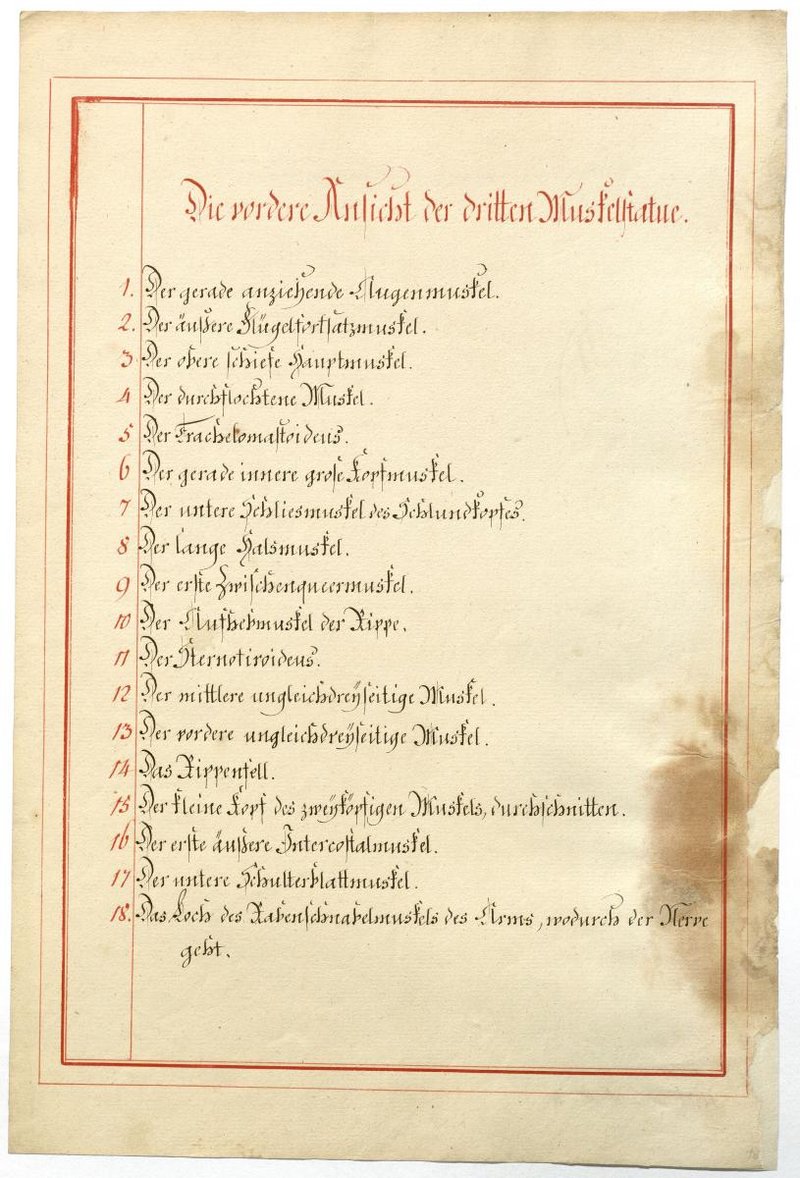 Die vordere Ansicht der dritten Muskelstatue.
1. Der gerade anziehende Augenmuskel.
2. Der äußere Flügelfortsatzmuskel.
3 Der obere schiefe Hauptmuskel.
4 Der durchflochtene Muskel.
5 Der Trachelomastoideus.
6 Der gerade innere grose Kopfmuskel.
7 Der untere Schliesmuskel des Schlundkopfes.
8 Der lange Halsmuskel.
9 Der erste Zwischenqueermuskel.
10 Der Aufhebmuskel der Rippe.
11 Der Sternotiroideus.
12 Der mittlere ungleichdreyseitige Muskel.
13 Der vordere ungleichdreyseitige Muskel.
14 Das Rippenfell.
15 Der kleine Kopf des zweyköpfigen Muskels, durchschnitten.
16 Der erste äußere Intercostalmuskel.
17 Der untere Schulterblattmuskel.
18. Das Loch des Rabenschnabelmuskels des Arms, wodurch der Nerve
geht.